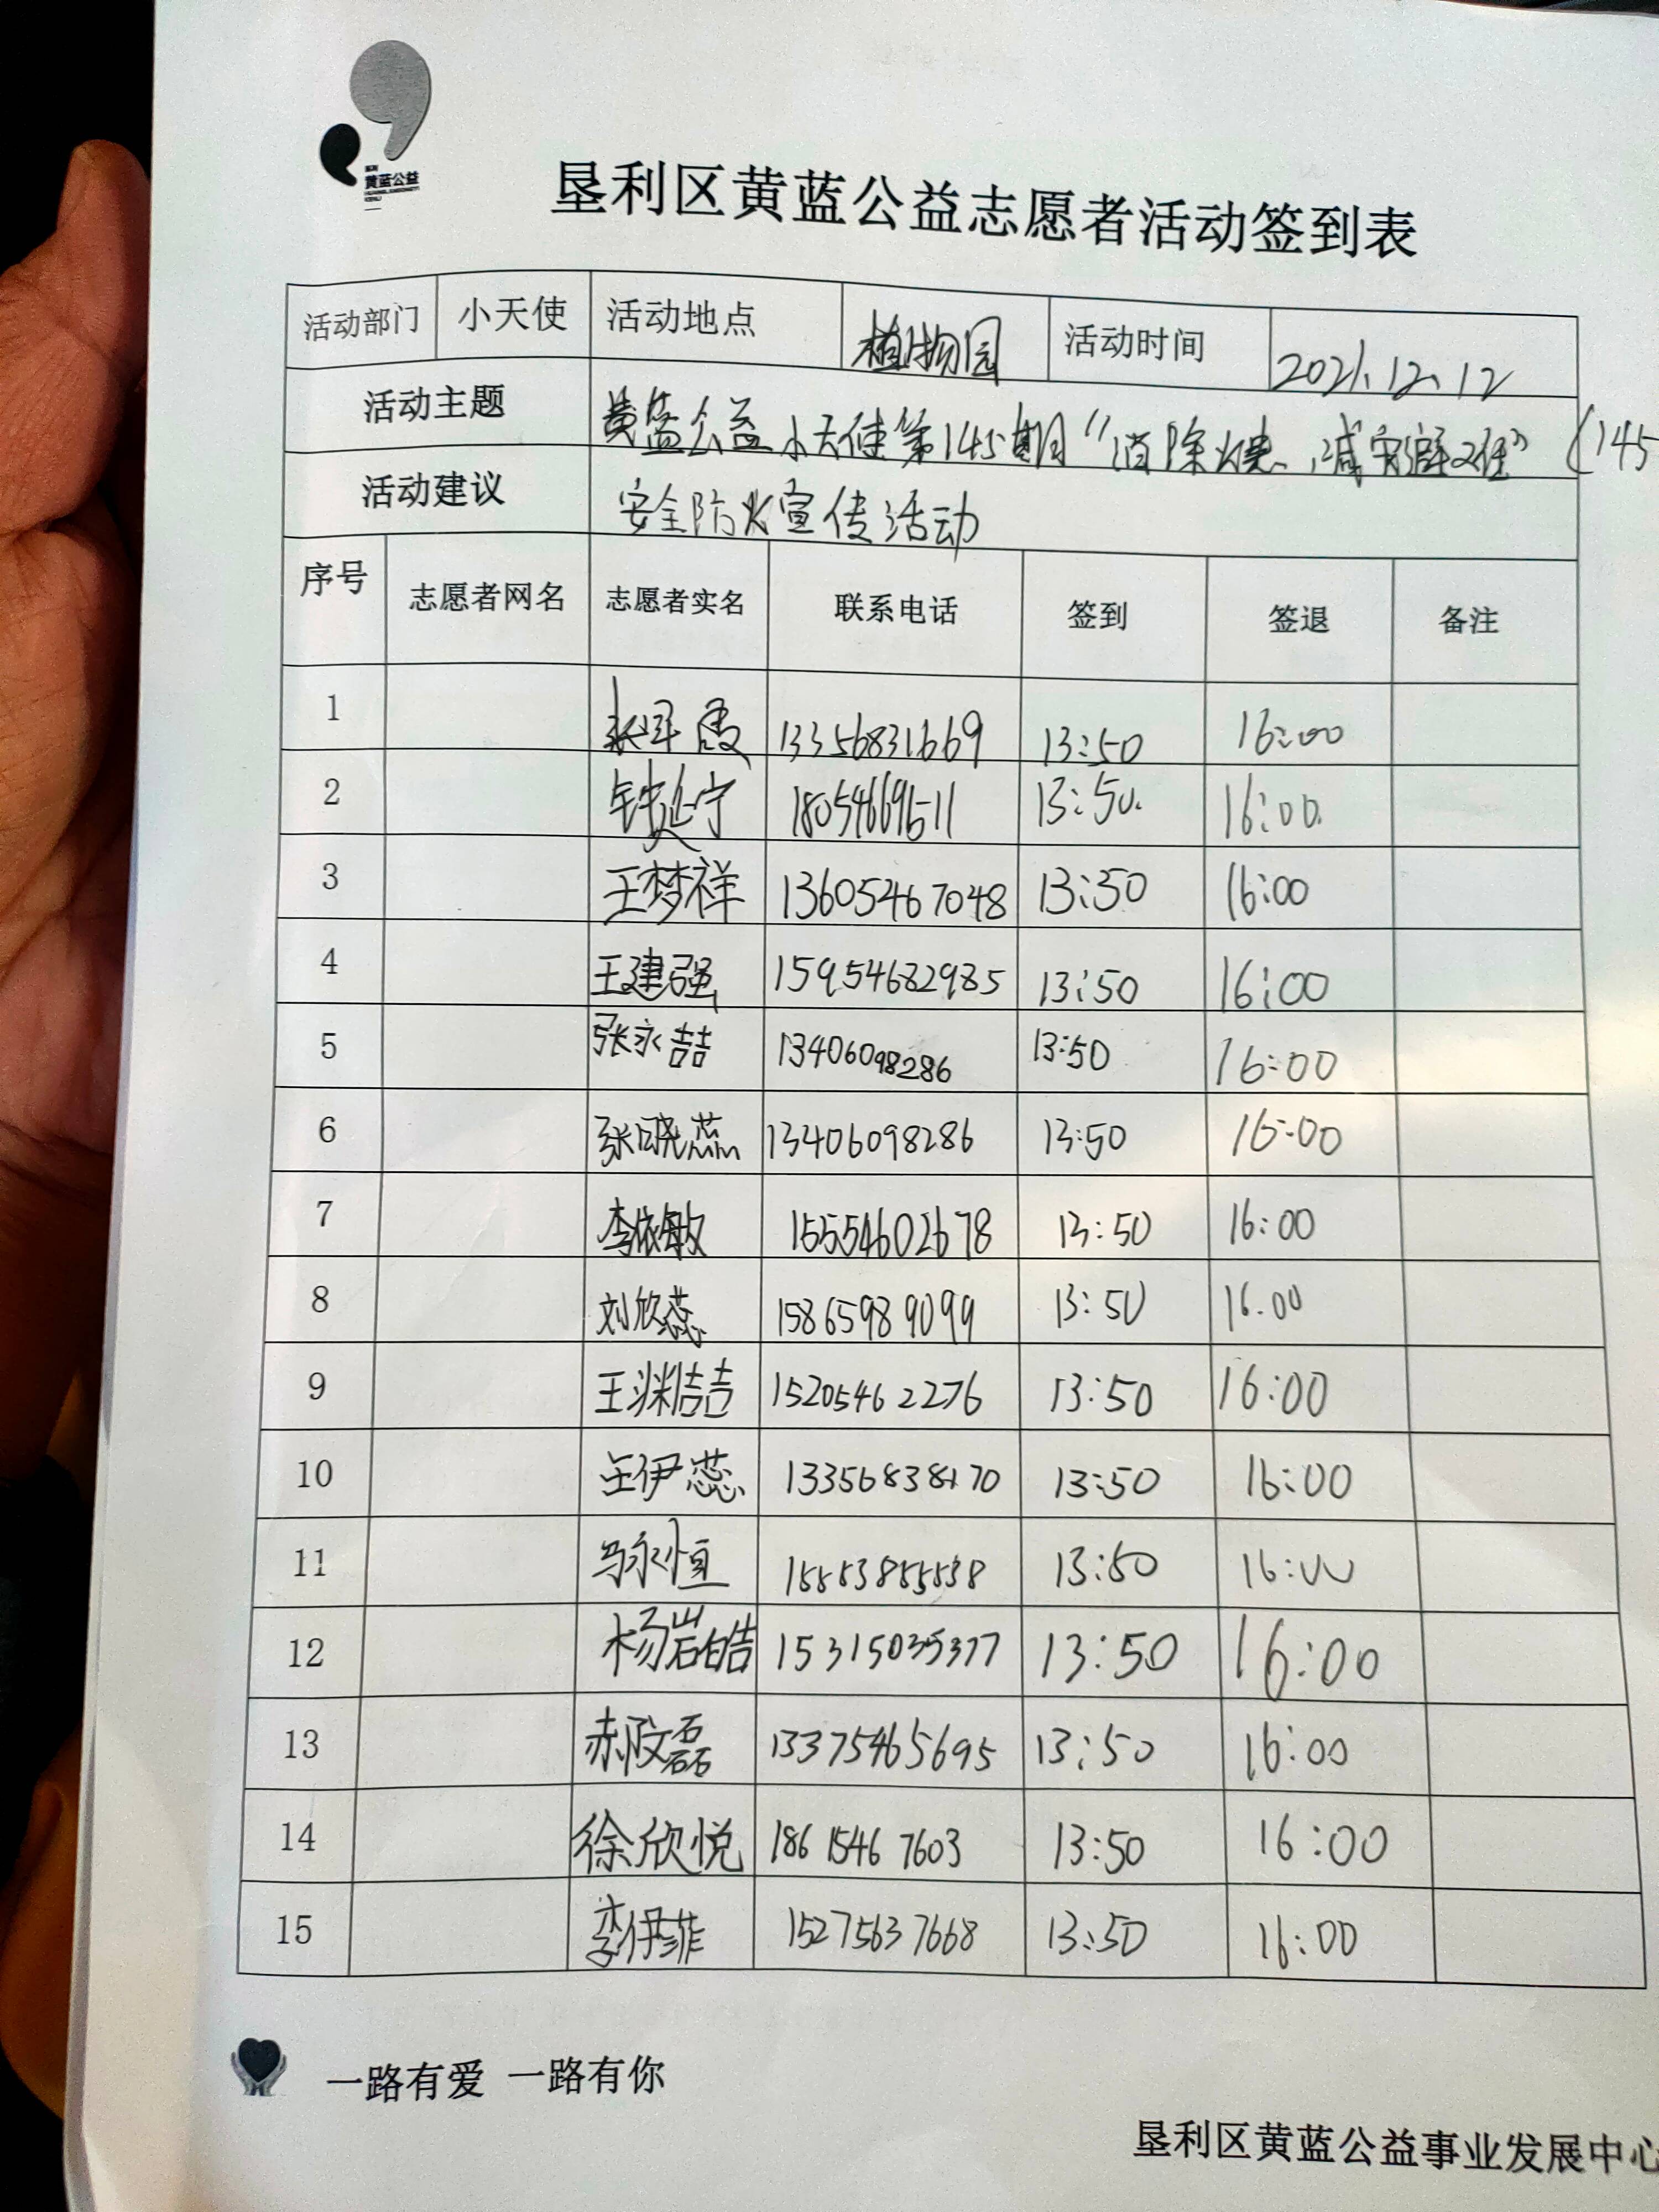 黄蓝公益
垦利区黄蓝公益志愿者活动签到表
活动部门 小天使 活动地点 植物园 活动时间 2021.12.12
活动主题 黄蓝公益小天使第145期“消除火患、减灾避难” (145
活动建议 安全防火宣传活动
序号 志愿者网名 志愿者实名 联系电话 签到 签退 备注
1 13356831669 13:50 16:00
2 18054669611 13:50. 16:00.
3 王梦祥 13605467048 13:50 16:00
4 王建强 15954682985 13:50 16:00
5 张永喆 13406098286 13:50 16:00
6 张晓蕊 13406098286 13:50 16:00
7 李依敏 15554602678 13:50 16:00
8 刘欣蕊 15865989099 13:50 16.00
9 王渊喆 15205462276 13:50 16:00
10 王伊蕊 13356838170 13:50 16:00
11 马永恒 13:50 16:00
12 杨岩皓 15315035377 13:50 16:00
13 13375465695 13:50 16:00
14 徐欣悦 18615467603 13:50 16:00
15 李伊菲 15275637668 13:50 16:00
一路有爱 一路有你
垦利区黄蓝公益事业发展中心